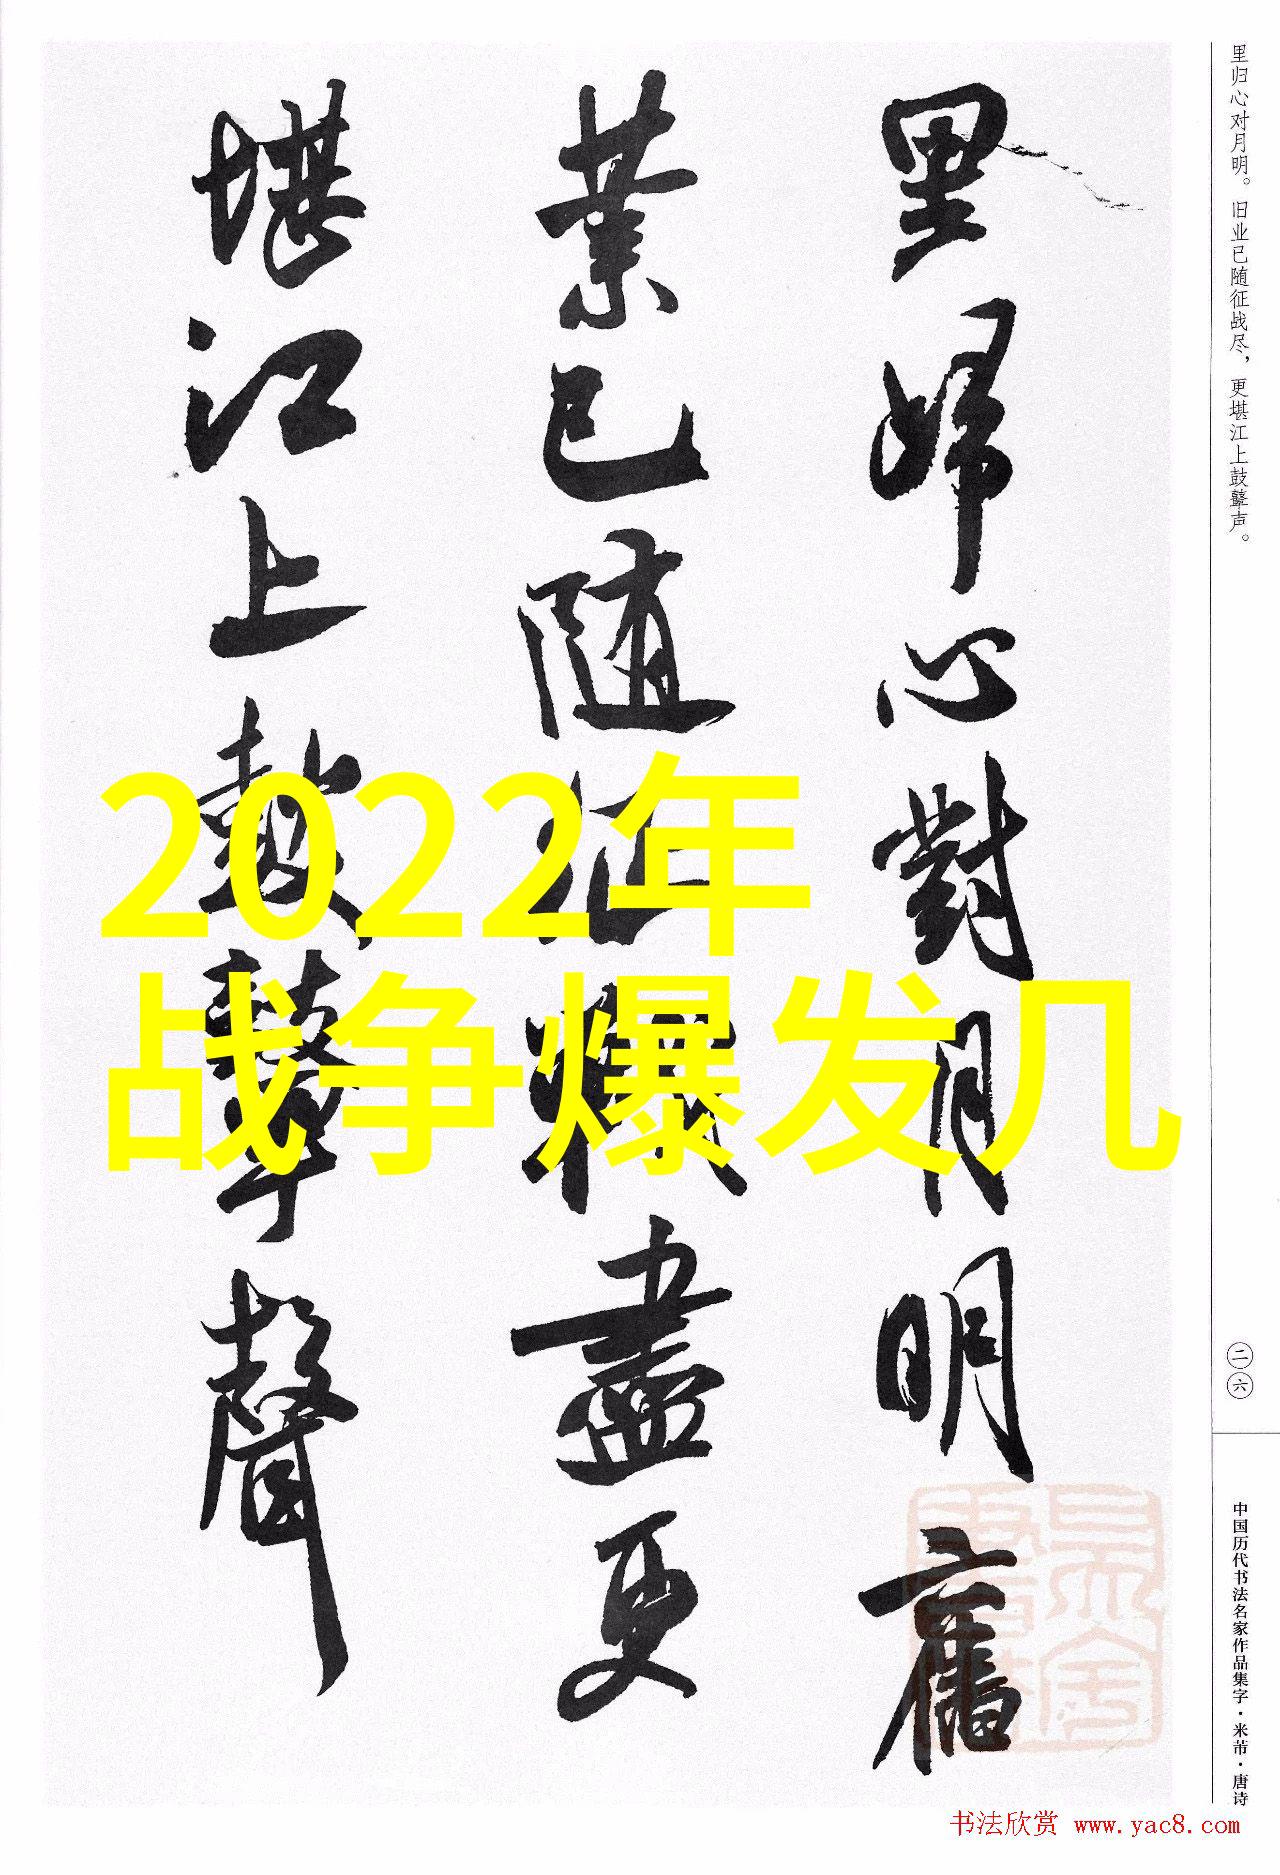 里歸心對月明舊
業已隨征戰盡更
堪江上鼓鼙聲
里归心对月明。旧业已随征战尽，更堪江上鼓鼙声。
二六
中国历代书法名家作品集字·米芾·唐诗
2022年
战争爆发几
书法欣赏 www.yac8.com